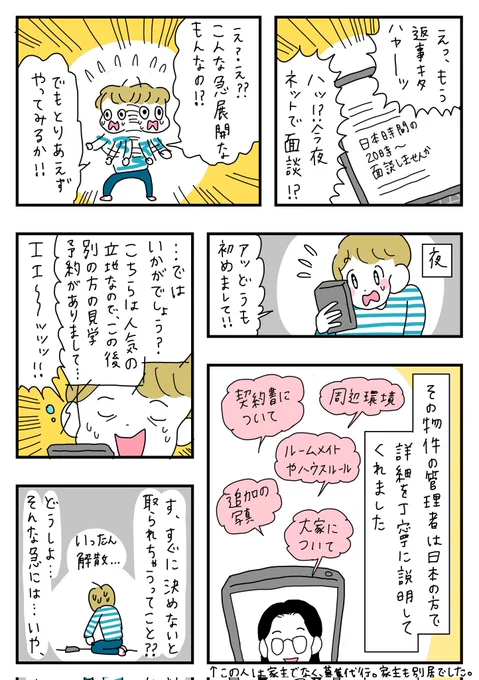 えっ、もう
返事キタ
ハヤーッ
日本時間の
20時〜
面談しませんか
ハッ!?今夜
ネットで面談!?
え?え??
こんな急展開な
もんなの!?
でもとりあえず
やってみるか!!
夜
アッどうも
初めまして!!
…では
いかがでしょう?
こちらは人気の
立地なので、この後
別の方の見学
予約がありまして…
エエ〜〜ッッッ!!
その物件の管理者は日本の方で
詳細を丁寧に説明して
くれました
周辺環境
契約書に
ついて
ルームメイト
やハウスルール
追加の
写真
大家に
ついて
↑この人は家主でなく、募集代行。家主も別居でした。
す、すぐに決めないと
取られちゃうってこと??
いったん
解散…
どうしよ…
そんな急には…いや、